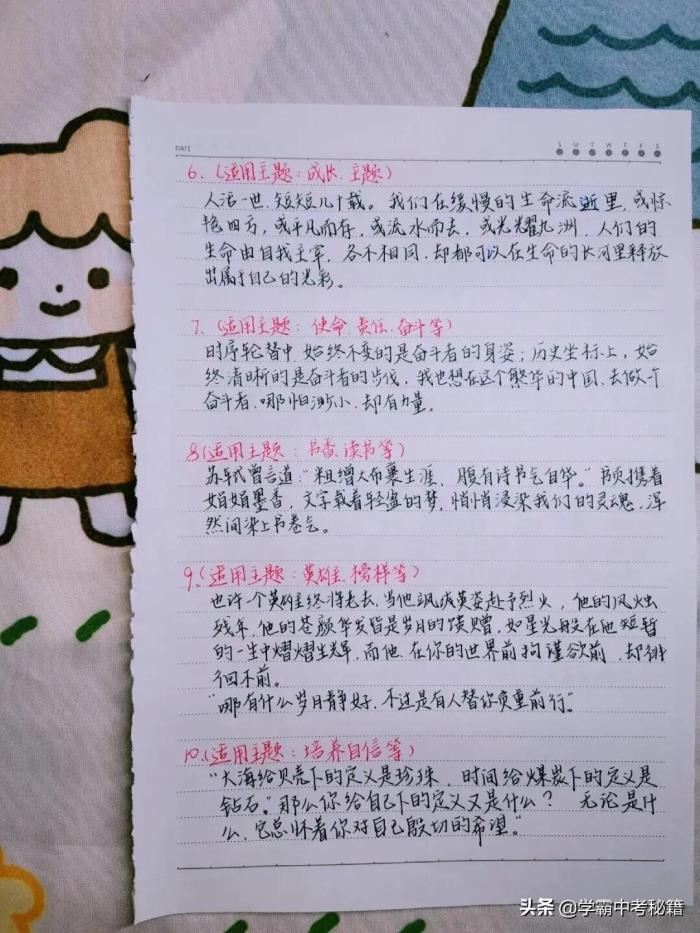 DATE
S M T W T F S
6、(适用主题：成长主题)
人活一世，短短几十载。我们在缓慢的生命流逝里，或惊
艳四方，或平凡而存，或流水而去，或光耀九洲，人们的
生命由自我主宰，各不相同，却都可以在生命的长河里释放
出属于自己的光彩。
7、(适用主题：使命、责任、奋斗等)
时序轮替中，始终不变的是奋斗者的身姿；历史坐标上，始
终清晰的是奋斗者的步伐，我也想在这个繁华的中国，去做个
奋斗者，哪怕渺小，却有力量。
8(适用主题：书香、读书等)
苏轼曾言道："粗缯大布裹生涯，腹有诗书气自华。"书页携着
娟娟墨香，文字载着轻盈的梦，悄悄浸染我们的灵魂，浑
然间染上书卷气。
9、(适用主题：英雄、榜样等)
也许一个英雄终将老去，当他飒飒英姿赴予烈火，他的风烛
残年，他的苍颜华发皆是岁月的馈赠，如星光般在他短暂
的一生中熠熠生辉，而他，在你的世界前拘谨欲前，却徘
徊不前。
"哪有什么岁月静好，不过是有人替你负重前行"
10、(适用主题：培养自信等)
"大海给贝壳下的定义是珍珠，时间给煤炭下的定义是
钻石。"那么你给自己下的定义又是什么？ 无论是什
么，它总怀着你对自己殷切的希望。"
头条 @学霸中考秘籍